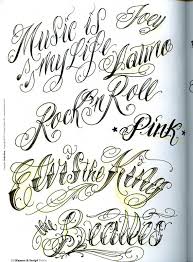 Music is
Joey
my Life
Rock'n Roll
*Pink*
Elvis the King
the Beatles